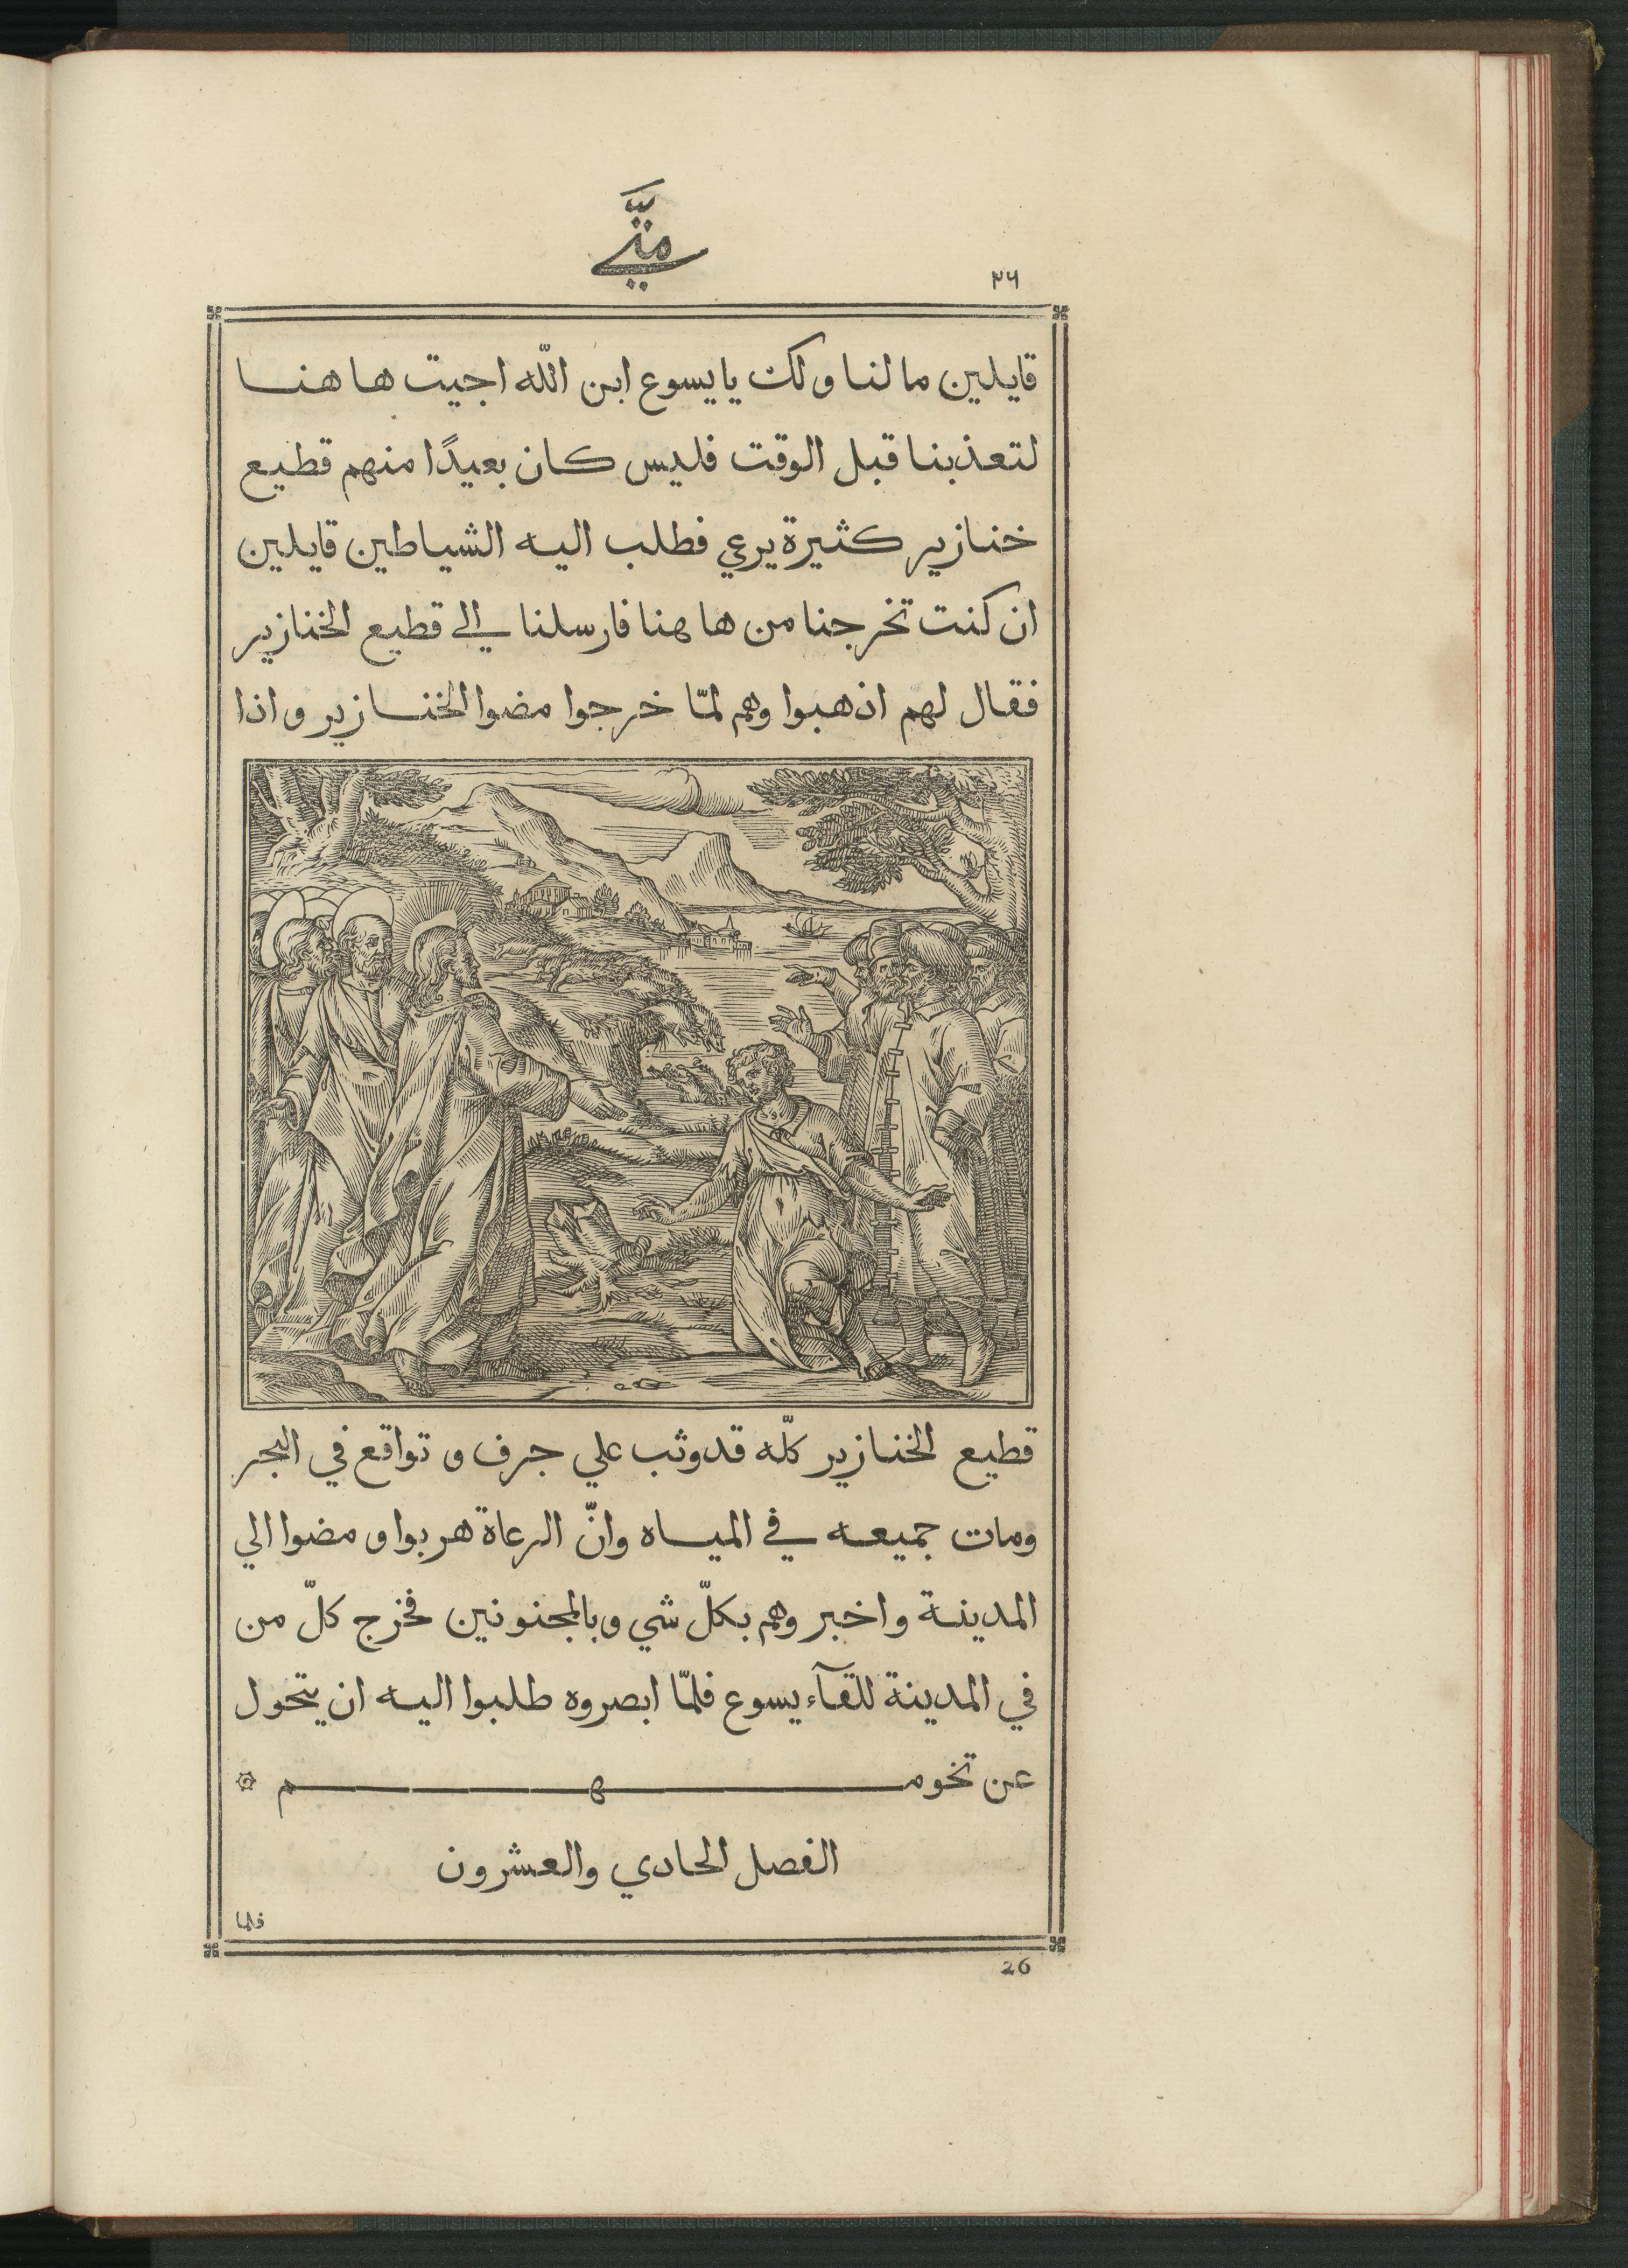 متّي
٢٦
قايلين ما لنا ولك يا يسوع ابن اللّه اجيت ها هنا
لتعذبنا قبل الوقت فليس كان بعيدًا منهم قطيع
خنازير كثيرة يرعي فطلب اليه الشياطين قايلين
ان كنت تخرجنا من ها هنا فارسلنا الي قطيع الخنازير
فقال لهم اذهبوا وهم لمّا خرجوا مضوا الخنازير واذا
قطيع الخنازير كلّه قد وثب علي جرف و تواقع في البحر
ومات جميعه في المياه وانّ الرعاة هربوا و مضوا الي
المدينة واخبروهم بكلّ شي وبالمجنونين فخرج كلّ من
في المدينة للقآء يسوع فلمّا ابصروه طلبوا اليه ان يتحول
عن تخومهم ۞
الفصل الحادي والعشرون
فلما
26